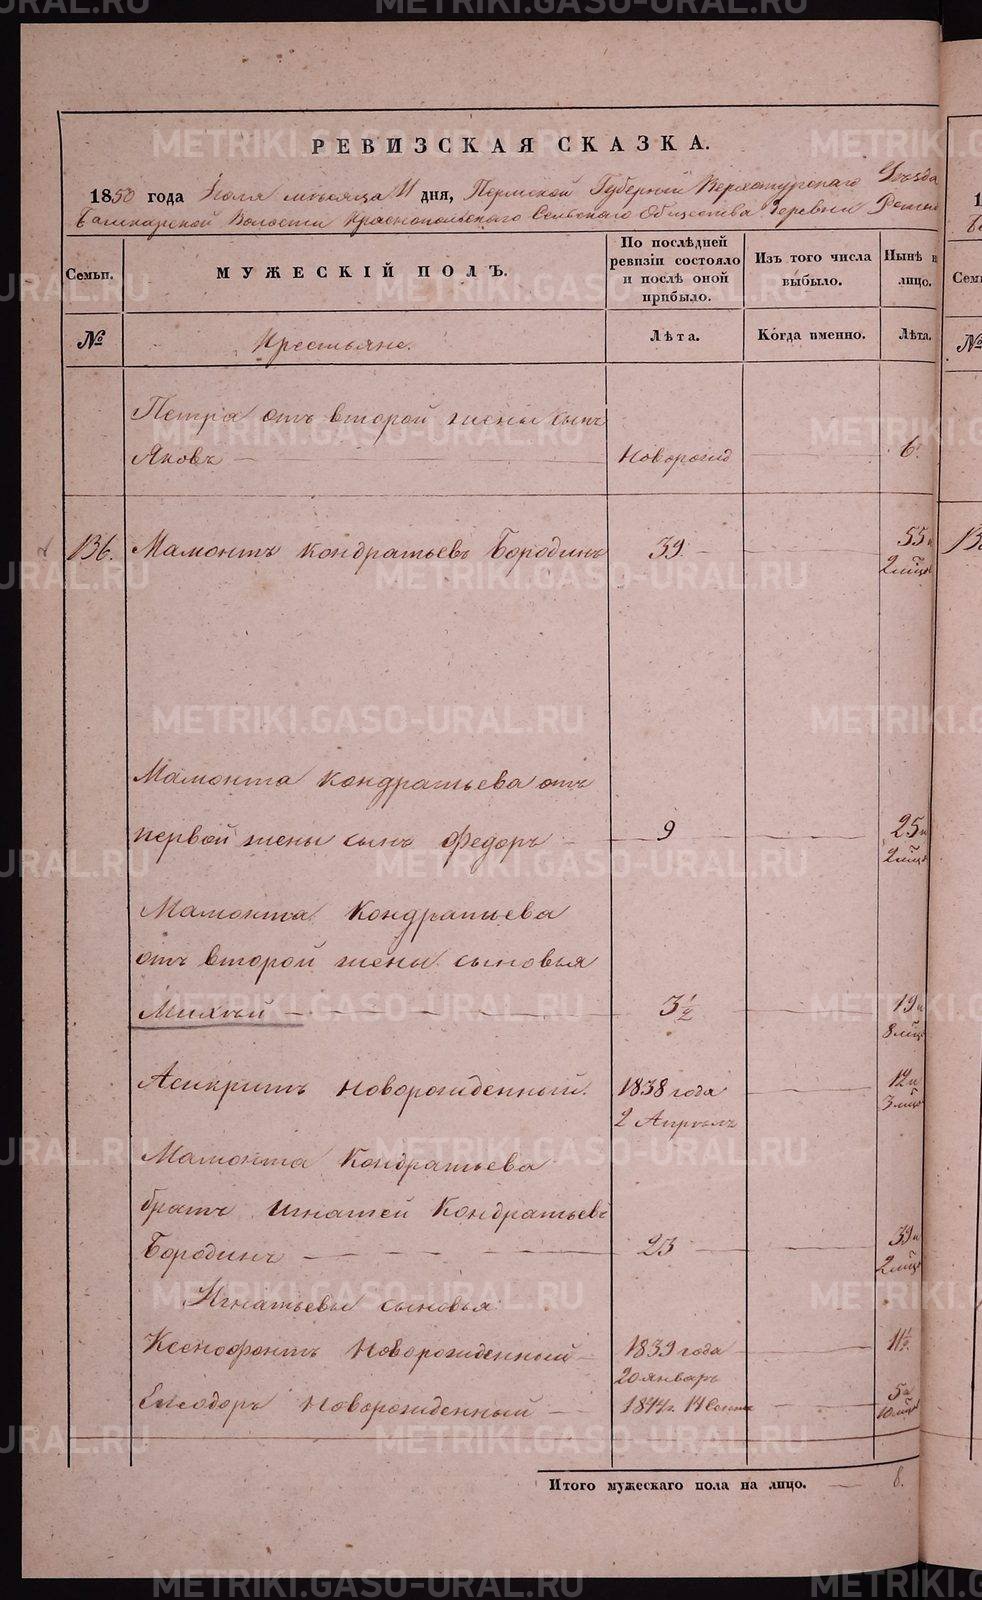 РЕВИЗСКАЯ СКАЗКА.
1850 года Июля мѣсяца 11 дня, Пермской Губерніи Верхотурскаго Уѣзда
Башкарской Волости Краснопольскаго Сельскаго Общества Деревни
Семьи.
МУЖЕСКІЙ ПОЛЪ.
По послѣдней ревизіи состояло и послѣ оной прибыло.
Изъ того числа выбыло.
Нынѣ на лицо.
№
Крестьяне.
Лѣта.
Когда именно.
Лѣта.
Петра отъ второй жены сынъ
Яковъ — Новорожд — 6
136. Мамонтъ Кондратьевъ Бородинъ 39 — 55 и
2 мѣся
Мамонта Кондратьева отъ
первой жены сынъ Федоръ — 9 — 25 и
2 мѣся
Мамонта Кондратьева
отъ второй жены сыновья
Михѣй — 3½ — 19 и
8 мѣся
Асикритъ Новорожденный. 1838 года — 12 и
2 Апрѣль 3 мѣся
Мамонта Кондратьева
братъ Игнатей Кондратьевъ
Бородинъ — 23 — 39 и
2 мѣся
Игнатьевы сыновья
Ксенофонтъ Новорожденный — 1839 года — 11½
20 январь
Новорожденный — 1844 г. 14 — 5 и
10 мѣся
Итого мужескаго пола на лицо. — 8.
METRIKI.GASO-URAL.RU